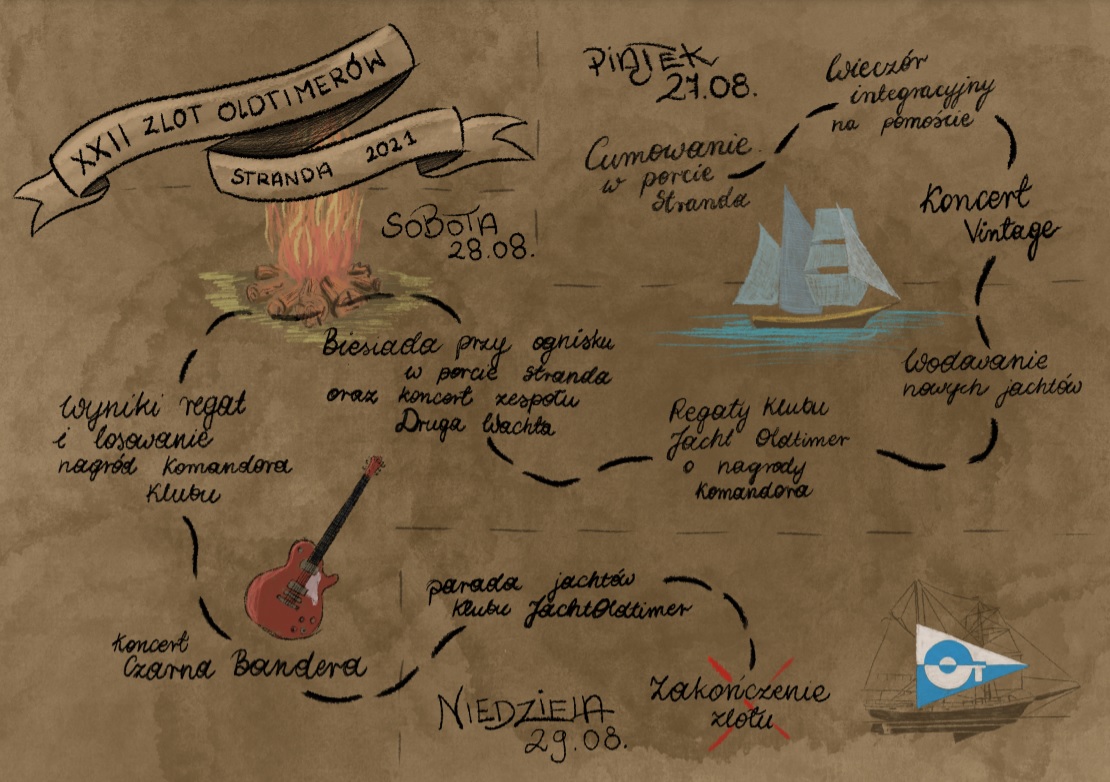 XXII ZLOT OLDTIMERÓW
STRANDA 2021
PIĄTEK
27.08.
Cumowanie
w porcie
Stranda
Wieczór
integracyjny
na pomoście
Koncert
Vintage
SOBOTA
28.08.
Wodowanie
nowych jachtów
Regaty Klubu
Jacht Oldtimer
o nagrody
Komandora
Biesiada przy ognisku
w porcie Stranda
oraz koncert zespołu
Druga Wachta
Wyniki regat
i losowanie
nagród Komandora
Klubu
Koncert
Czarna Bandera
NIEDZIELA
29.08.
parada jachtów
Klubu JachtOldtimer
Zakończenie
zlotu
OT